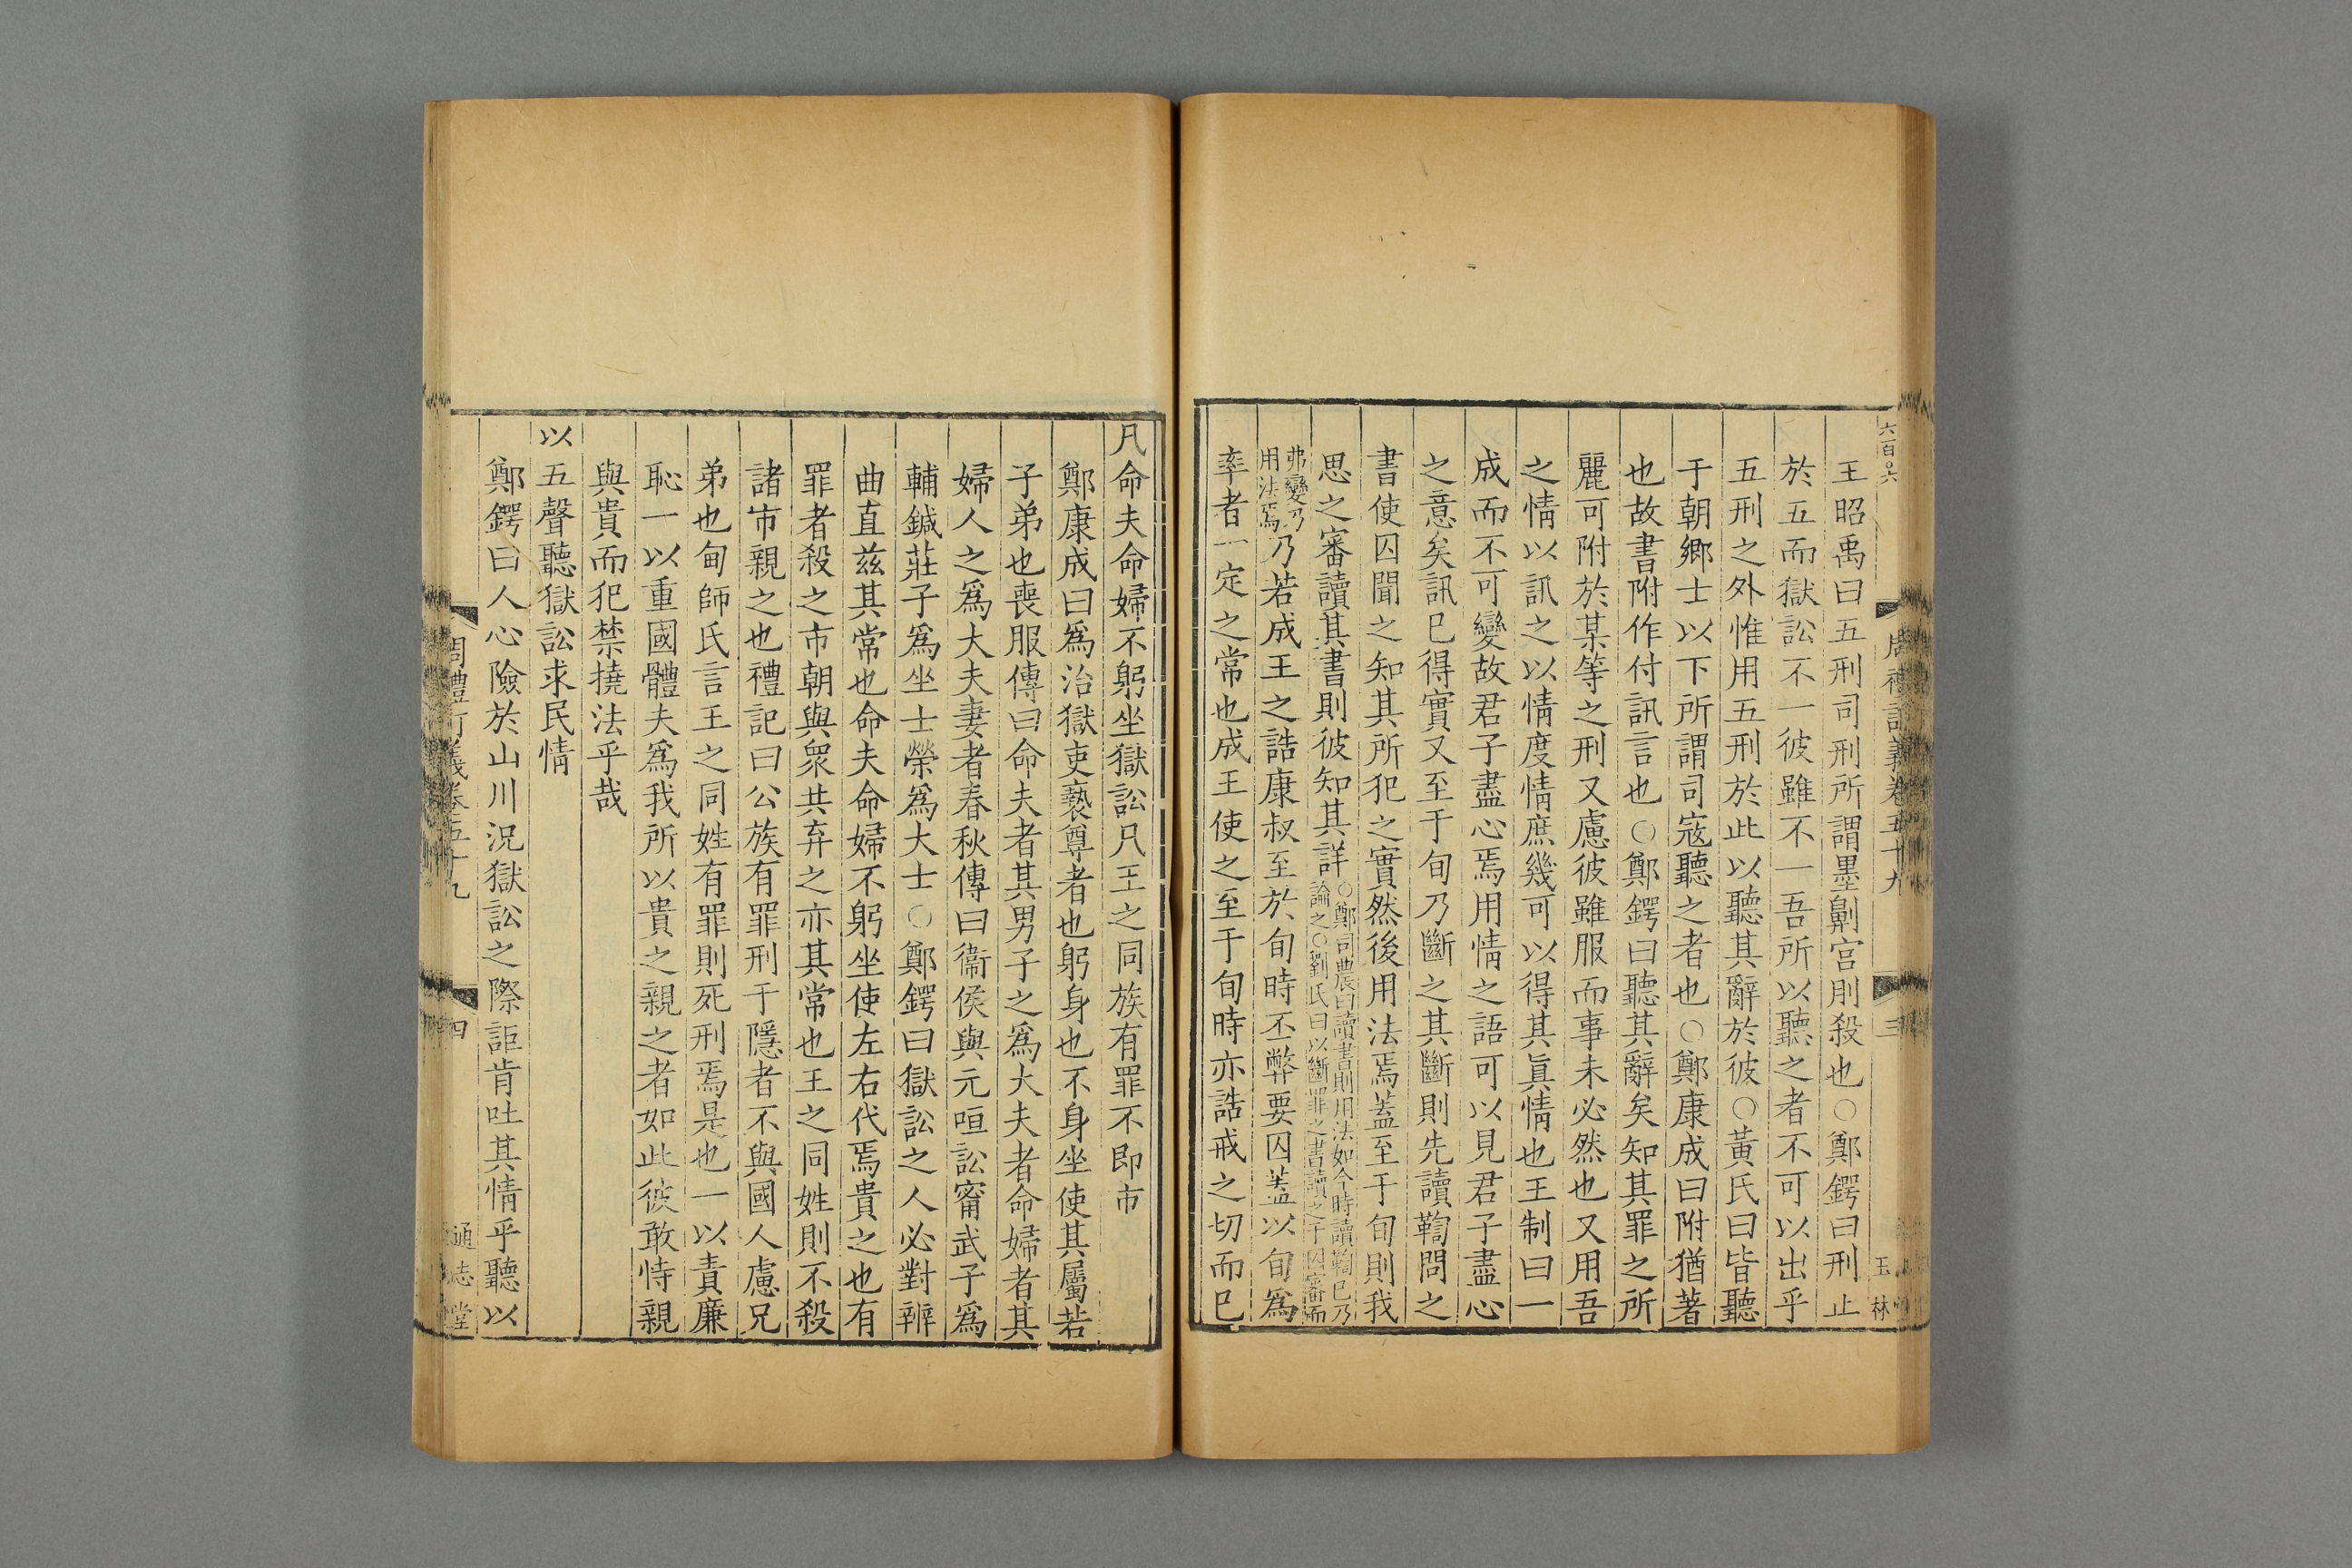 六百六
周禮訂義卷五十九
三
玉林
王昭禹曰五刑司刑所謂墨劓宫刖殺也○鄭鍔曰刑止
於五而獄訟不一彼雖不一吾所以聽之者不可以出乎
五刑之外惟用五刑於此以聽其辭於彼○黃氏曰皆聽
于朝鄉士以下所謂司寇聽之者也○鄭康成曰附猶著
也故書附作付訊言也○鄭鍔曰聽其辭矣知其罪之所
麗可附於某等之刑又慮彼雖服而事未必然也又用吾
之情以訊之以情度情庶幾可以得其眞情也王制曰一
成而不可變故君子盡心焉用情之語可以見君子盡心
之意矣訊巳得實又至于旬乃斷之其斷則先讀鞫問之
書使囚聞之知其所犯之實然後用法焉蓋至于旬則我
思之審讀其書則彼知其詳○鄭司農曰讀書則用法如今時讀鞫巳乃
論之○劉氏曰以斷罪之書讀之于囚審而
弗變乃
用法焉乃若成王之誥康叔至於旬時丕弊要囚蓋以旬爲
率者一定之常也成王使之至于旬時亦誥戒之切而巳
凡命夫命婦不躬坐獄訟凡王之同族有罪不即市
鄭康成曰爲治獄吏褻尊者也躬身也不身坐使其屬若
子弟也喪服傳曰命夫者其男子之爲大夫者命婦者其
婦人之爲大夫妻者春秋傳曰衞侯與元咺訟甯武子爲
輔鍼莊子爲坐士榮爲大士○鄭鍔曰獄訟之人必對辨
曲直兹其常也命夫命婦不躬坐使左右代焉貴之也有
罪者殺之市朝與衆共弃之亦其常也王之同姓則不殺
諸市親之也禮記曰公族有罪刑于隱者不與國人慮兄
弟也甸師氏言王之同姓有罪則死刑焉是也一以責廉
恥一以重國體夫爲我所以貴之親之者如此彼敢恃親
與貴而犯禁撓法乎哉
以五聲聽獄訟求民情
鄭鍔曰人心險於山川況獄訟之際詎肯吐其情乎聽以
周禮訂義卷五十九
四
通志堂